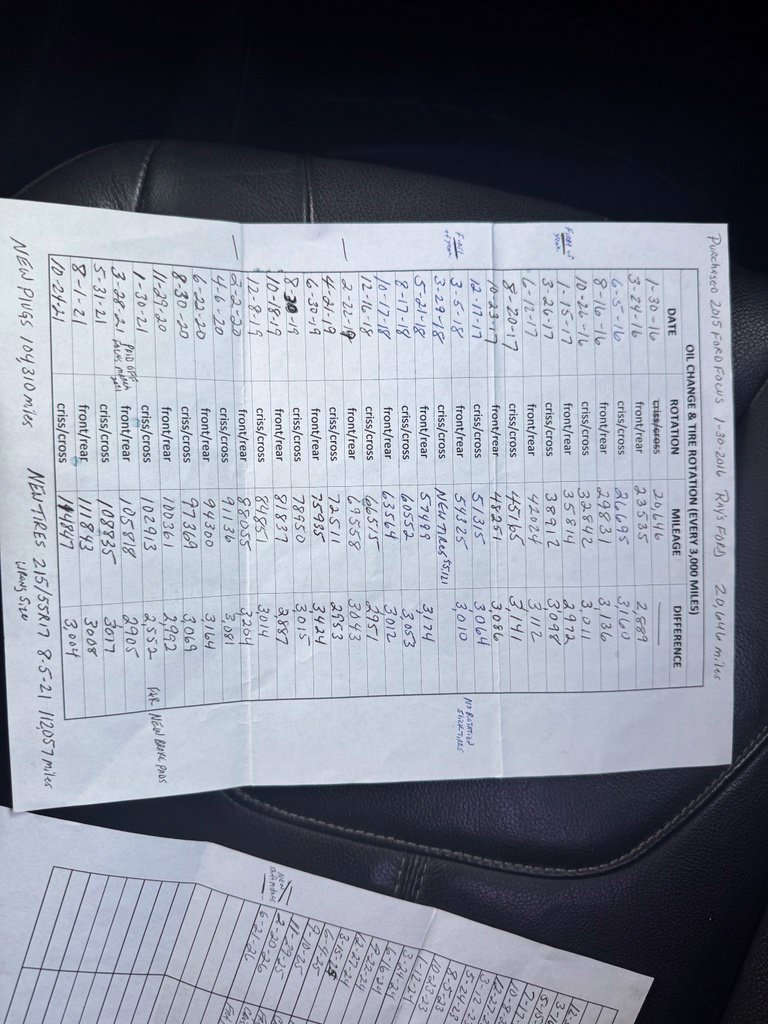 PURCHASED 2015 FORD FOCUS 1-30-2016 RAY'S FORD 20,646 miles
OIL CHANGE & TIRE ROTATION (EVERY 3,000 MILES)
DATE ROTATION MILEAGE DIFFERENCE
1-30-16 criss/cross 20,646 —
3-24-16 front/rear 23535 2,889
6-5-16 criss/cross 26695 3,160
8-16-16 front/rear 29831 3,136
10-26-16 criss/cross 32842 3,011
First year 1-15-17 front/rear 35814 2972
3-26-17 criss/cross 38912 3,098
6-12-17 front/rear 42024 3,112
8-20-17 criss/cross 45165 3,141
10-23-17 front/rear 48251 3,086
12-17-17 criss/cross 51315 3,064
3-5-18 front/rear 54325 3,010 NO ROTATION SLICK TIRES
3-29-18 criss/cross NEW TIRES 55,121
5-21-18 front/rear 57499 3,174
8-17-18 criss/cross 60552 3,053
10-17-18 front/rear 63564 3,012
12-16-18 criss/cross 66515 2951
2-22-19 front/rear 69558 3043
4-21-19 criss/cross 72511 2953
6-30-19 front/rear 75935 3,424
8-30-19 criss/cross 78950 3,015
10-18-19 front/rear 81837 2,887
12-8-19 criss/cross 84851 3,014
2-2-20 front/rear 88055 3,204
4-6-20 criss/cross 91136 3,081
6-22-20 front/rear 94300 3,164
8-30-20 criss/cross 97369 3,069
11-29-20 front/rear 100361 2,992
1-30-21 criss/cross 102913 2,552 NEW BRAKE PADS
3-28-21 PAID OFF front/rear 105818 2905
5-31-21 criss/cross 108835 3017
8-1-21 front/rear 111843 3008
10-24-21 criss/cross 114847 3,004
NEW PLUGS 104,310 miles NEW TIRES 215/55R17 8-5-21 112,057 miles
WRONG SIZE
5-24-23
8-5-23
10-23-23
3-24-24
3-15-25
6-4-25
9-10-25
11-29-25
2-20-26
6-21-26
NEW